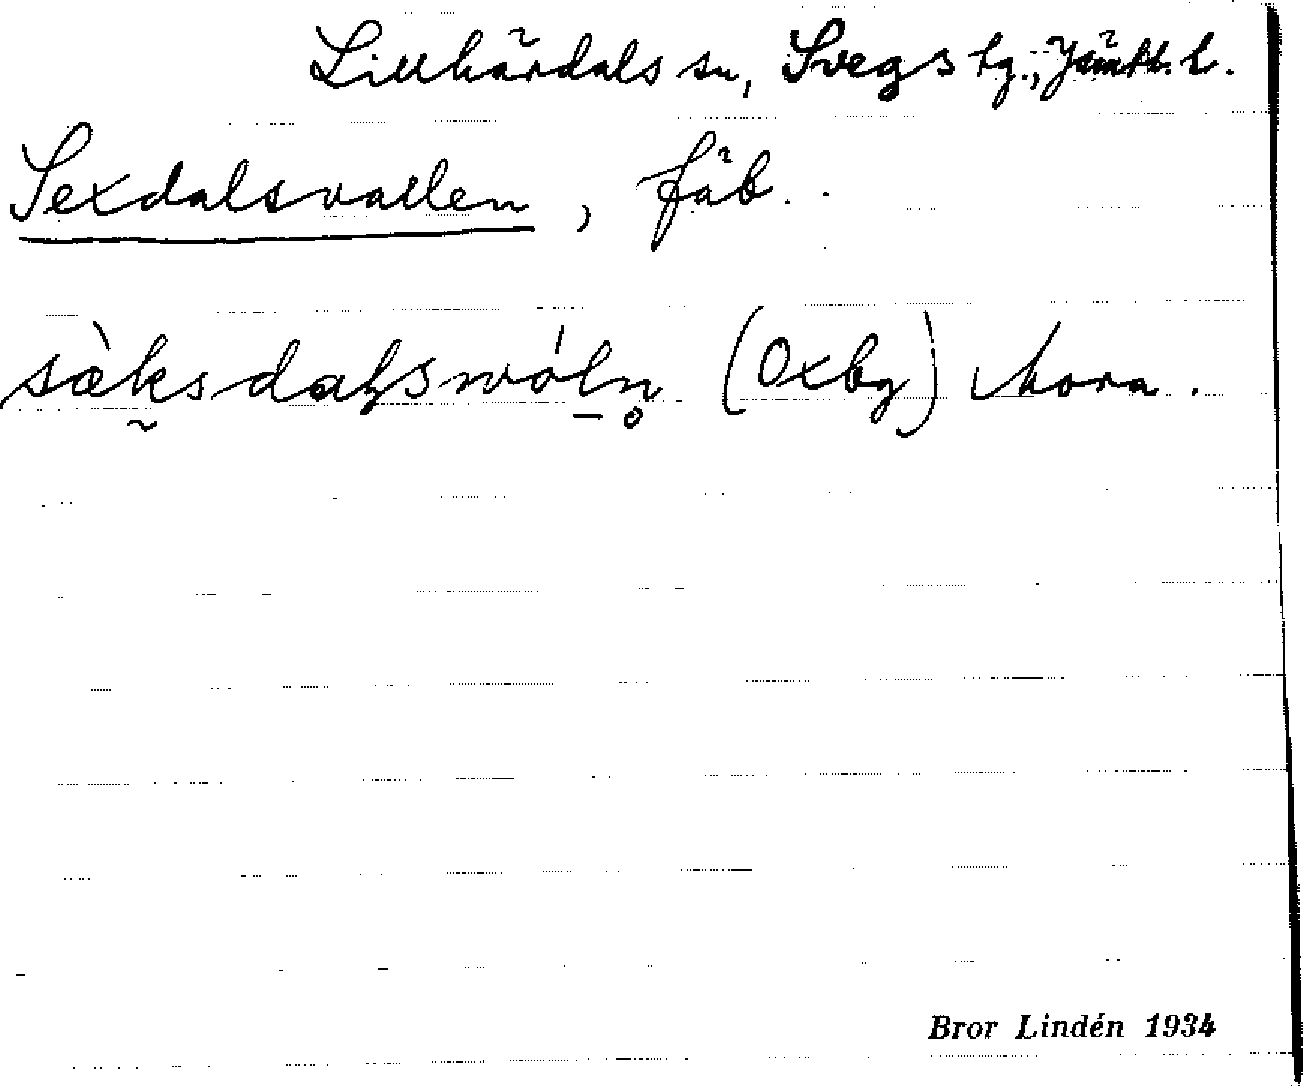 Lillhärdals sn, Svegs tg., Jämtl. l.
Sexdalsvallen, fäb.
(Oxby) Mora.
Bror Lindén 1934